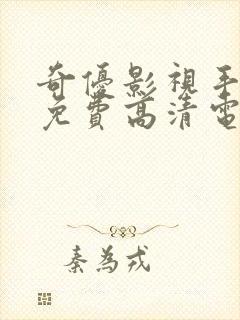 奇優影視手
免費高清電
秦為戎